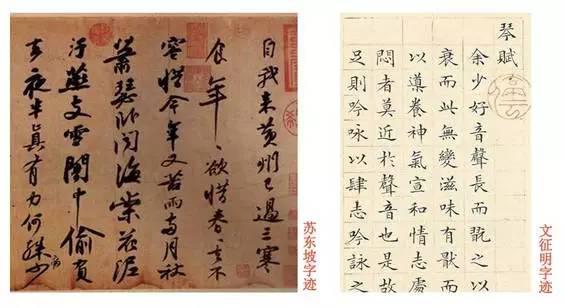 自我來黃州已過三寒
食年〻欲惜春〻去不
容惜今年又苦雨兩月秋
蕭瑟卧聞海棠花泥
汙燕支雪闇中偷負
去夜半真有力何殊少
苏东坡字迹
琴賦
余少好音聲長而翫之以
衰而此無變滋味有猒而
以導養神氣宣和情志處
悶者莫近於聲音也是故
足則吟咏以肆志吟詠之
文征明字迹